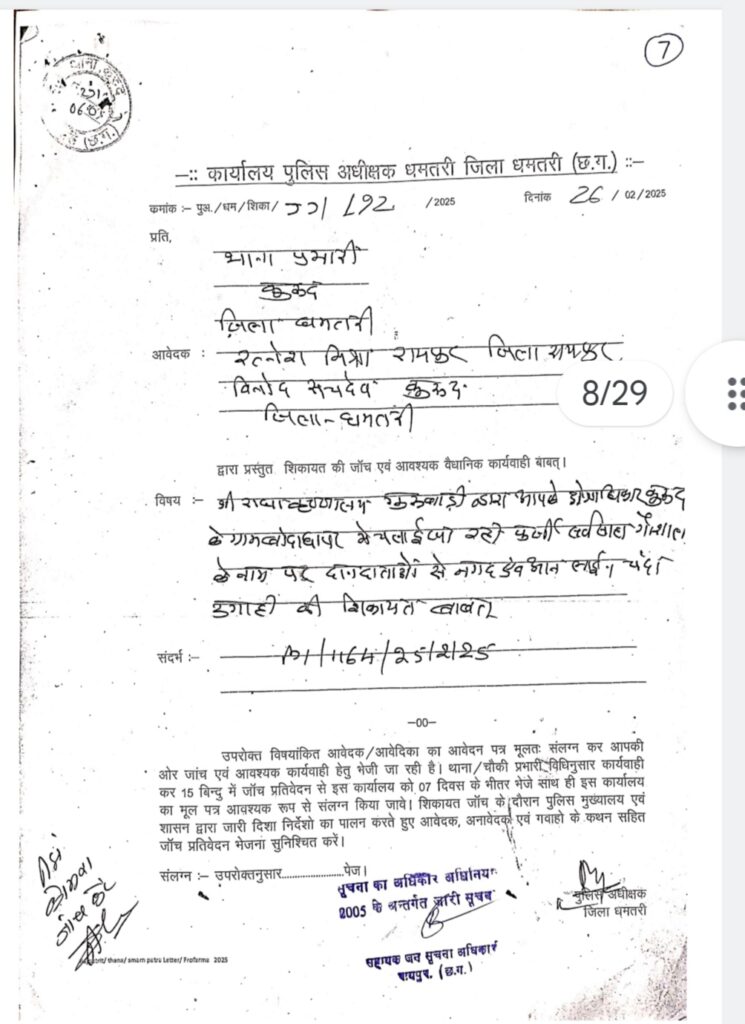 7
थाना कुरूद
(छ.ग.)
-:: कार्यालय पुलिस अधीक्षक धमतरी जिला धमतरी (छ.ग.) ::-
कमांक :- पुअ./धम/शिका/ 192 /2025 दिनांक 26 / 02 /2025
प्रति,
थाना प्रभारी
कुरूद
जिला धमतरी
आवेदक : रत्नेश मिश्रा रायपुर जिला रायपुर.
विनोद सचदेव कुरूद
8/29
जिला-धमतरी
द्वारा प्रस्तुत शिकायत की जॉच एवं आवश्यक वैधानिक कार्यवाही बाबत्।
विषय :- श्री द्वारा आपके कुरूद
के ग्राम में चलाई जा रही फर्जी गौशाला
के नाम पर दानदाताओं से नगद एवं आनलाईन चंदा
उगाही की शिकायत बाबत्
संदर्भ :- /1164/25/2/25
-00-
उपरोक्त विषयांकित आवेदक/आवेदिका का आवेदन पत्र मूलतः संलग्न कर आपकी
ओर जांच एवं आवश्यक कार्यवाही हेतु भेजी जा रही है। थाना/चौकी प्रभारी विधिनुसार कार्यवाही
कर 15 बिन्दु में जॉच प्रतिवेदन से इस कार्यालय को 07 दिवस के भीतर भेजे साथ ही इस कार्यालय
का मूल पत्र आवश्यक रूप से संलग्न किया जावे। शिकायत जॉच के दौरान पुलिस मुख्यालय एवं
शासन द्वारा जारी दिशा निर्देशो का पालन करते हुए आवेदक, अनावेदक एवं गवाहो के कथन सहित
जॉच प्रतिवेदन भेजना सुनिश्चित करें।
संलग्न :- उपरोक्तनुसार....................पेज।
सूचना का अधिकार अधिनियम
2005 के अन्तर्गत जारी सूचना
पुलिस अधीक्षक
जिला धमतरी
जांच करे
सहायक जन सूचना अधिकारी
रायपुर, (छ.ग.)
/thana/ Letter/ Proforma 2025